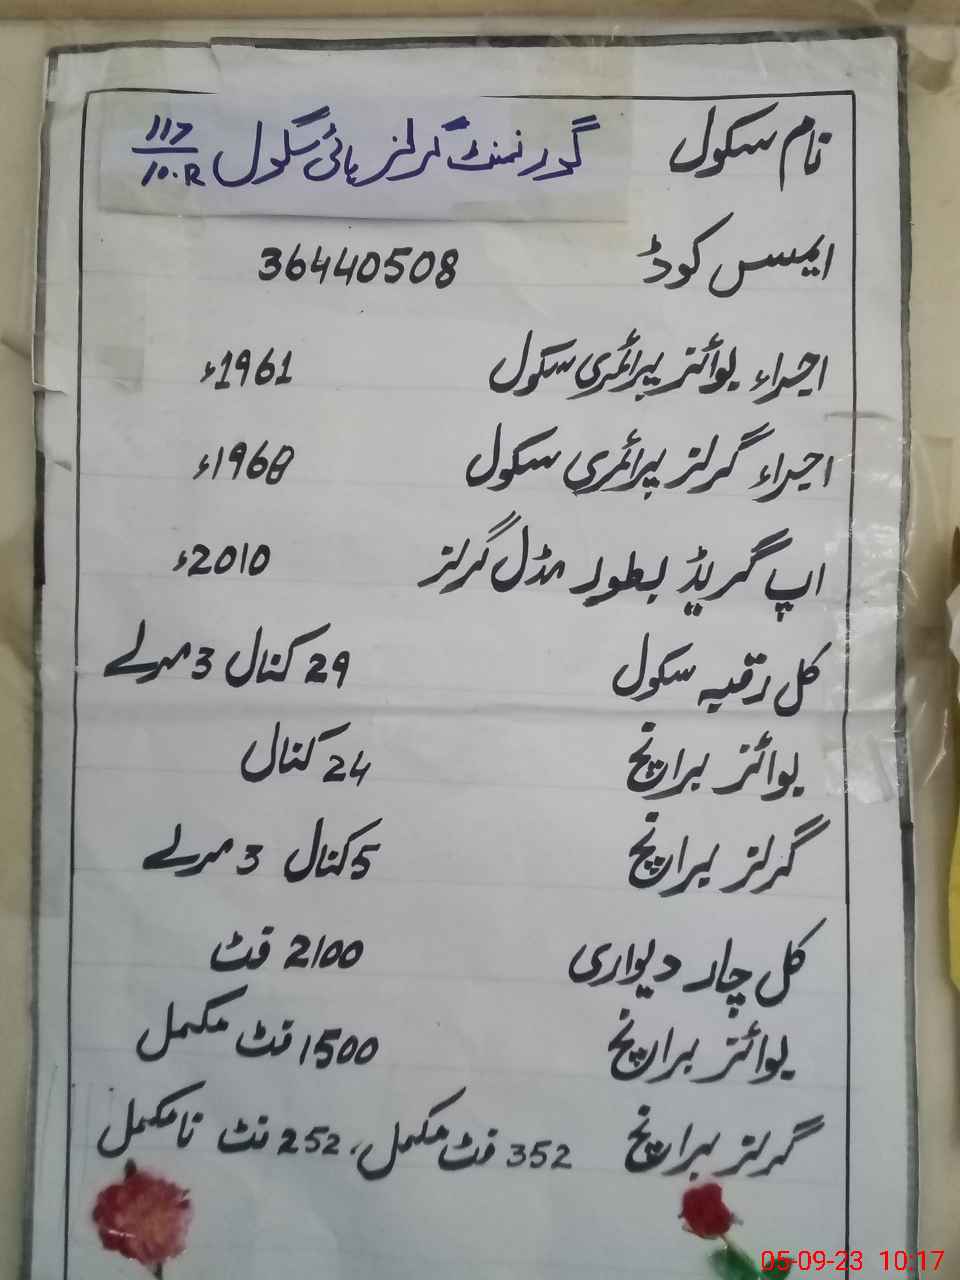 نام سکول گورنمنٹ گرلز ہائی سکول 117/10.R
ایمس کوڈ 36440508
اجراء بوائز پرائمری سکول 1961ء
اجراء گرلز پرائمری سکول 1968ء
اپ گریڈ بطور مڈل گرلز 2010ء
کل رقبہ سکول 29 کنال 3 مرلے
بوائز برانچ 24 کنال
گرلز برانچ 5 کنال 3 مرلے
کل چار دیواری 2100 فٹ
بوائز برانچ 1500 فٹ مکمل
گرلز برانچ 352 فٹ مکمل، 252 فٹ نامکمل
05-09-23 10:17